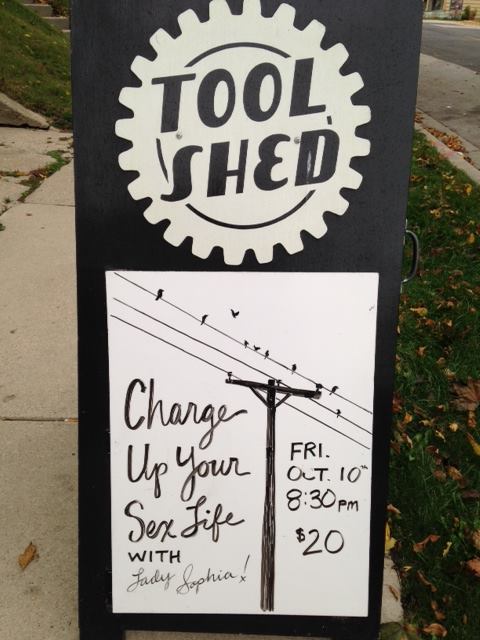 TOOL
SHED
Charge
Up Your
Sex Life
WITH
Lady Sophia!
FRI.
OCT. 10th
8:30pm
$20